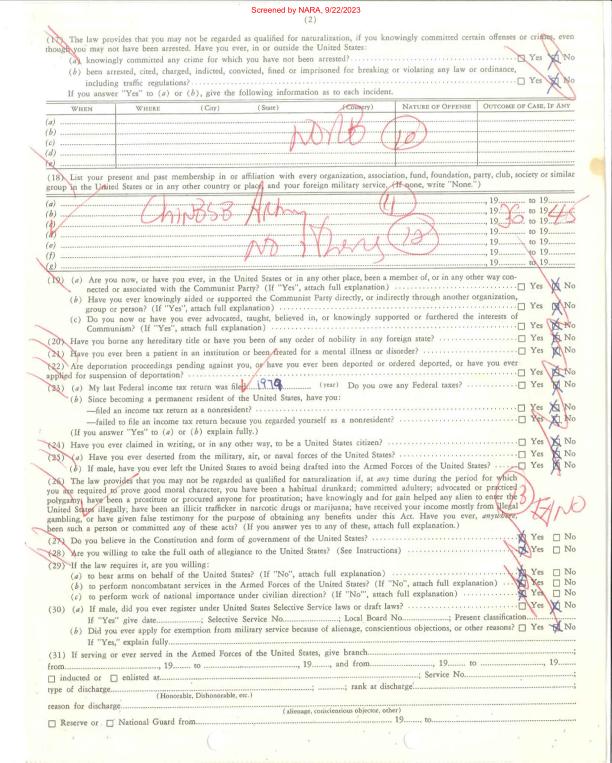 Screened by NARA, 9/22/2023
(2)
(17) The law provides that you may not be regarded as qualified for naturalization, if you knowingly committed certain offenses or crimes, even
though you may not have been arrested. Have you ever, in or outside the United States:
(a) knowingly committed any crime for which you have not been arrested? ☐ Yes ☒ No
(b) been arrested, cited, charged, indicted, convicted, fined or imprisoned for breaking or violating any law or ordinance,
including traffic regulations? ☐ Yes ☒ No
If you answer "Yes" to (a) or (b), give the following information as to each incident.
WHEN WHERE (City) (State) (Country) NATURE OF OFFENSE OUTCOME OF CASE, IF ANY
(a)
(b)
(c) NONE 10
(d)
(e)
(18) List your present and past membership in or affiliation with every organization, association, fund, foundation, party, club, society or similar
group in the United States or in any other country or place, and your foreign military service. (If none, write "None.")
(a) 11 , 19 to 19
(b) Chinese Army , 19 36 to 19 45
(d) , 19 to 19
(e) No others 12 , 19 to 19
(f) , 19 to 19
(g) , 19 to 19
(19) (a) Are you now, or have you ever, in the United States or in any other place, been a member of, or in any other way con-
nected or associated with the Communist Party? (If "Yes", attach full explanation) ☐ Yes ☒ No
(b) Have you ever knowingly aided or supported the Communist Party directly, or indirectly through another organization,
group or person? (If "Yes", attach full explanation) ☐ Yes ☒ No
(c) Do you now or have you ever advocated, taught, believed in, or knowingly supported or furthered the interests of
Communism? (If "Yes", attach full explanation) ☐ Yes ☒ No
(20) Have you borne any hereditary title or have you been of any order of nobility in any foreign state? ☐ Yes ☒ No
(21) Have you ever been a patient in an institution or been treated for a mental illness or disorder? ☐ Yes ☒ No
(22) Are deportation proceedings pending against you, or have you ever been deported or ordered deported, or have you ever
applied for suspension of deportation? ☐ Yes ☒ No
(23) (a) My last Federal income tax return was filed 1979 (year) Do you owe any Federal taxes? ☐ Yes ☒ No
(b) Since becoming a permanent resident of the United States, have you:
—filed an income tax return as a nonresident? ☐ Yes ☒ No
—failed to file an income tax return because you regarded yourself as a nonresident? ☐ Yes ☒ No
(If you answer "Yes" to (a) or (b) explain fully.)
(24) Have you ever claimed in writing, or in any other way, to be a United States citizen? ☐ Yes ☒ No
(25) (a) Have you ever deserted from the military, air, or naval forces of the United States? ☐ Yes ☒ No
(b) If male, have you ever left the United States to avoid being drafted into the Armed Forces of the United States? ☐ Yes ☒ No
(26) The law provides that you may not be regarded as qualified for naturalization if, at any time during the period for which
you are required to prove good moral character, you have been a habitual drunkard; committed adultery; advocated or practiced
polygamy; have been a prostitute or procured anyone for prostitution; have knowingly and for gain helped any alien to enter the
United States illegally; have been an illicit trafficker in narcotic drugs or marijuana; have received your income mostly from illegal
gambling, or have given false testimony for the purpose of obtaining any benefits under this Act. Have you ever, anywhere,
been such a person or committed any of these acts? (If you answer yes to any of these, attach full explanation.) NO
(27) Do you believe in the Constitution and form of government of the United States? ☒ Yes ☐ No
(28) Are you willing to take the full oath of allegiance to the United States? (See Instructions) ☒ Yes ☐ No
(29) If the law requires it, are you willing:
(a) to bear arms on behalf of the United States? (If "No", attach full explanation) ☒ Yes ☐ No
(b) to perform noncombatant services in the Armed Forces of the United States? (If "No", attach full explanation) ☒ Yes ☐ No
(c) to perform work of national importance under civilian direction? (If "No", attach full explanation) ☒ Yes ☐ No
(30) (a) If male, did you ever register under United States Selective Service laws or draft laws? ☐ Yes ☒ No
If "Yes" give date ; Selective Service No. ; Local Board No. ; Present classification
(b) Did you ever apply for exemption from military service because of alienage, conscientious objections, or other reasons? ☐ Yes ☒ No
If "Yes," explain fully
(31) If serving or ever served in the Armed Forces of the United States, give branch ;
from , 19 to , 19 , and from , 19 to , 19 ;
☐ inducted or ☐ enlisted at ; Service No. ;
type of discharge ; ; rank at discharge ;
(Honorable, Dishonorable, etc.)
reason for discharge
(alienage, conscientious objector, other)
☐ Reserve or ☐ National Guard from 19 to